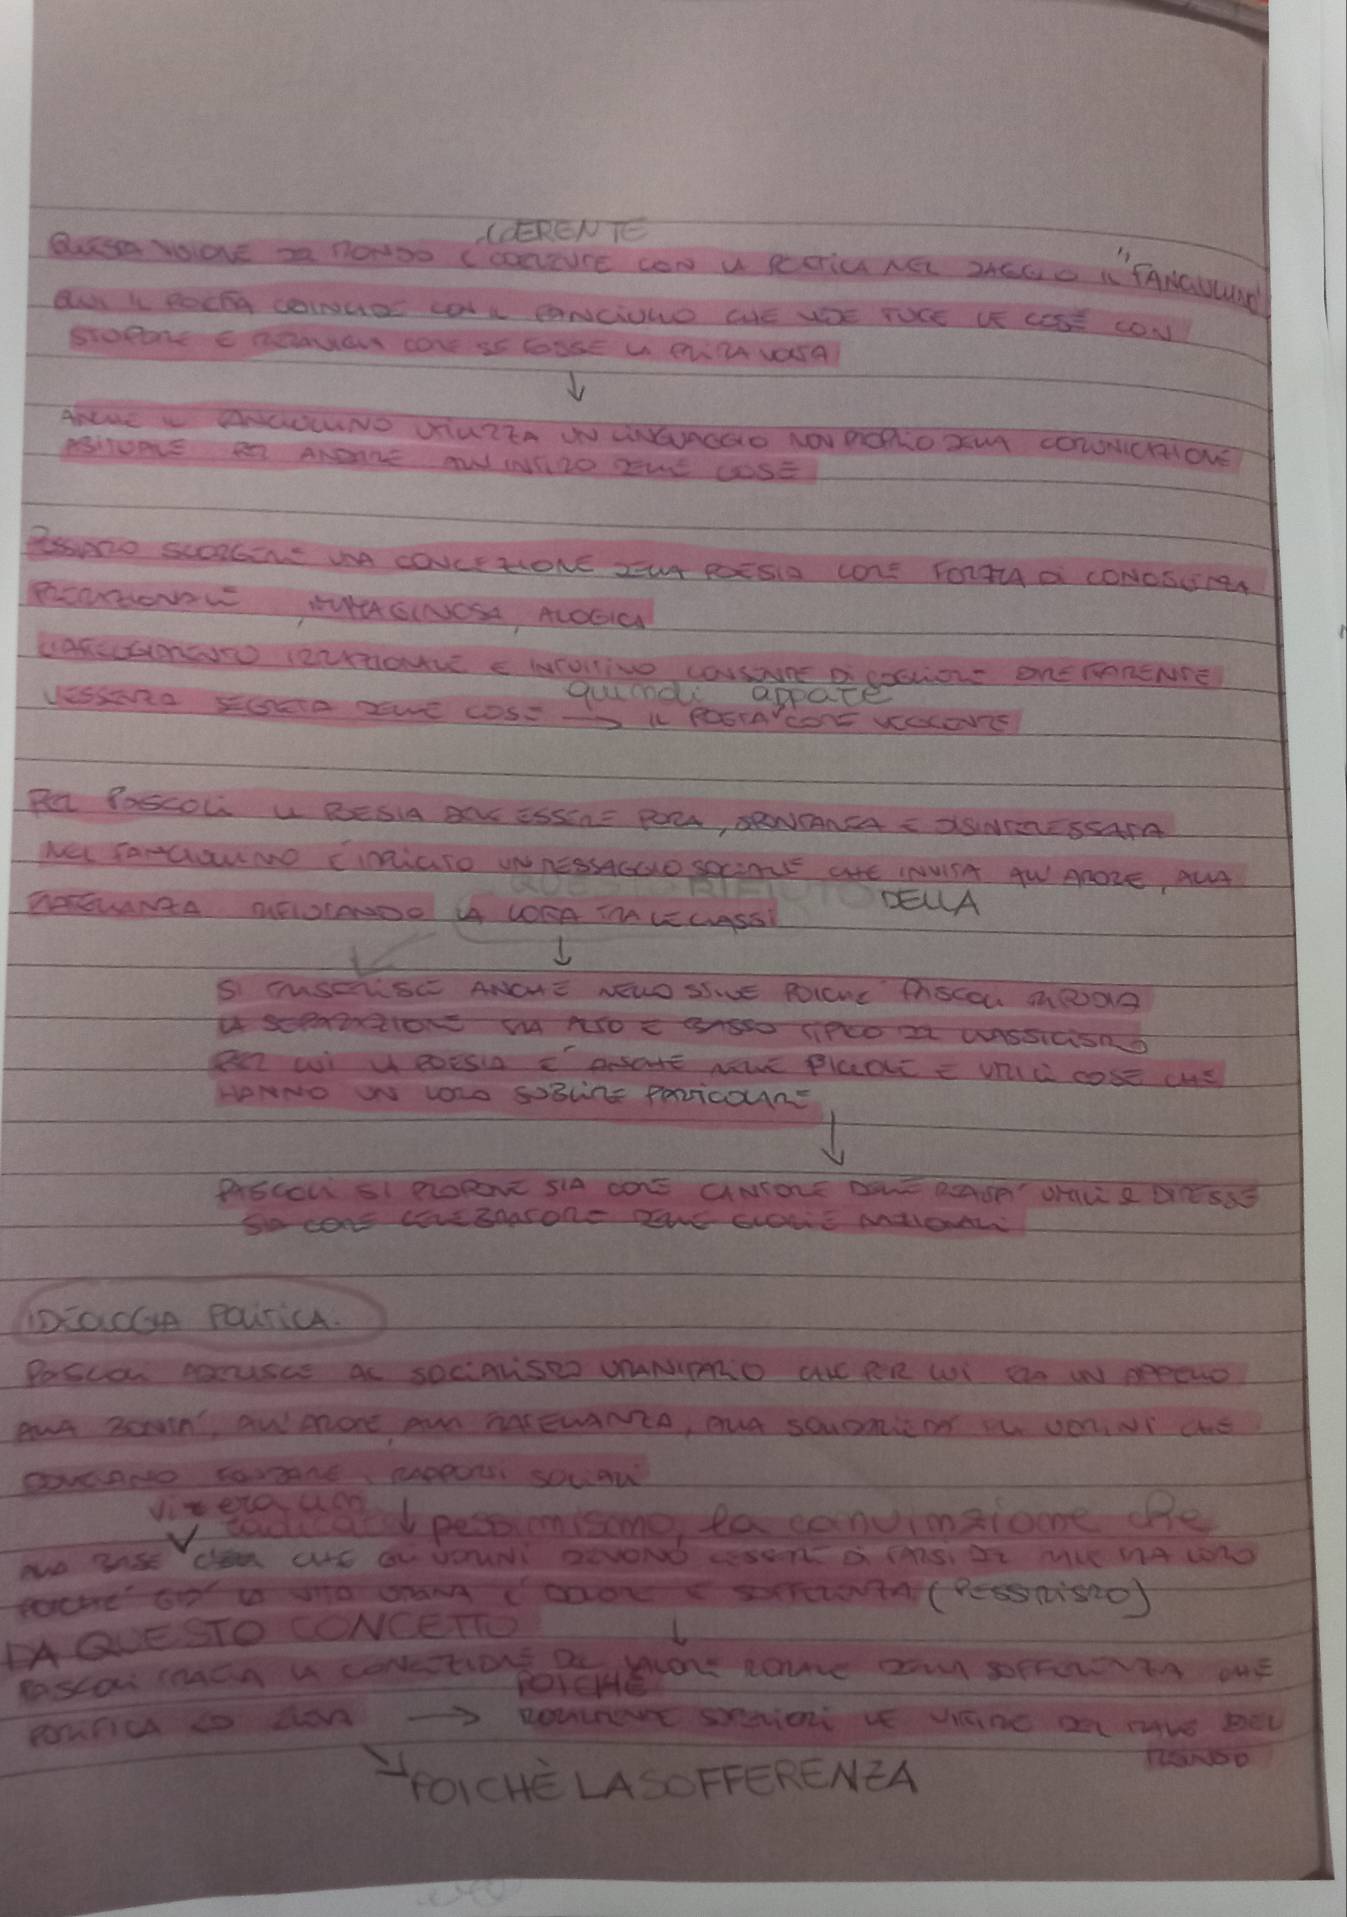 COERENTE
QUESTA VISIONE DEL MONDO È COERENTE CON LA POETICA NEL SAGGIO IL "FANCIULLINO
QUI IL POETA COINCIDE CON IL FANCIULLO CHE VEDE TUTTE LE COSE CON
STUPORE E MERAVIGLIA COME SE FOSSE LA PRIMA VOLTA
↓
ANCHE IL FANCIULLINO UTILIZZA UN LINGUAGGIO NON PROPRIO DELLA COMUNICAZIONE
ABITUALE PER ANDARE ALL'INTIMO DELLE COSE
POSSIAMO SCORGERE UNA CONCEZIONE DELLA POESIA COME FORMA DI CONOSCENZA
, IMMAGINOSA, ALOGICA
L'ATTEGGIAMENTO IRRAZIONALE E INTUITIVO CONSENTE DI COGLIERE DIRETTAMENTE
quindi appare
L'ESSENZA SEGRETA DELLE COSE → IL POETA COME VEGGENTE
PER PASCOLI LA POESIA DEVE ESSERE PURA, SPONTANEA E DISINTERESSATA
NEL FANCIULLINO È IMPLICITO UN MESSAGGIO SOCIALE CHE INVITA ALL'AMORE, ALLA
QUESTO RIFIUTO DELLA
FRATELLANZA RIFIUTANDO LA LOTTA TRA LE CLASSI
↓
SI TRASFERISCE ANCHE NELLO STILE POICHÉ PASCOLI RIPUDIA
LA SEPARAZIONE TRA ALTO E BASSO TIPICO DEL CLASSICISMO
PER LUI LA POESIA È ANCHE NELLE PICCOLE E UMILI COSE CHE
HANNO UN LORO SUBLIME PARTICOLARE
↓
PASCOLI SI PROPONE SIA COME CANTORE DELLE REALTÀ UMILI E DIMESSE
SIA COME CELEBRATORE DELLE GLORIE NAZIONALI
IDEOLOGIA POLITICA.
PASCOLI ADERISCE AL SOCIALISMO UMANITARIO CHE PER LUI ERA UN APPELLO
ALLA BONTÀ, ALL'AMORE, ALLA FRATELLANZA, ALLA SOLIDARIETÀ TRA UOMINI CHE
DOVEVANO FONDARE I RAPPORTI SOCIALI
vi era un
radical ↓ pessimismo, la convinzione che
ALLA BASE CHE GLI UOMINI DEVONO CESSARE DI FARSI DEL MALE TRA LORO
POICHÉ GIÀ LA VITA UMANA È DOLORE E SOFFERENZA (PESSIMISMO)
DA QUESTO CONCETTO ↓
PASCOLI TRACCIA LA CONCEZIONE DEL VALORE MORALE DELLA SOFFERENZA CHE
POICHÈ
PURIFICA ED ELEVA → MORALMENTE SUPERIORI LE VITTIME DEL MALE DEL
MONDO
POICHÈ LA SOFFERENZA